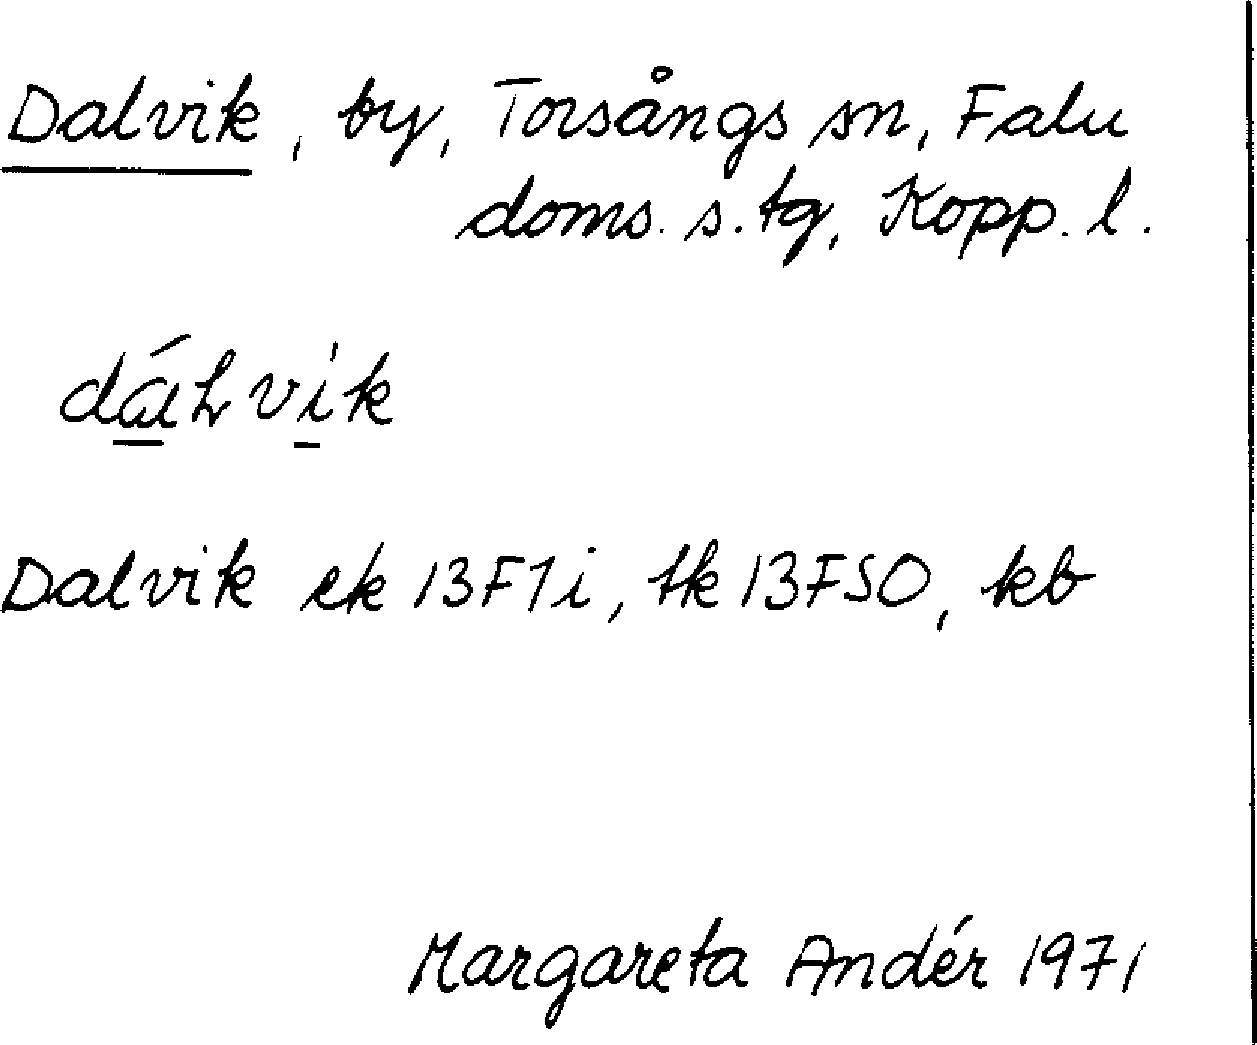 Dalvik, by, Torsångs sn, Falu
doms. s. tg, Kopp. l.
dáLvik
Dalvik ek 13F1i, tk 13FSO, kb
Margareta Andér 1971